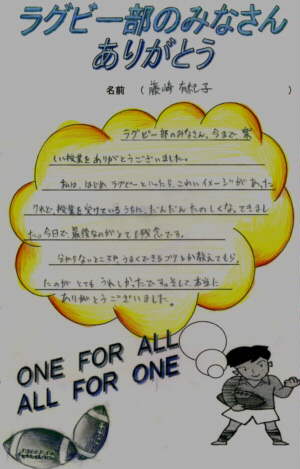 ラグビー部のみなさん
ありがとう
名前 ( 藤崎 子 )
ラグビー部のみなさん、今まで 楽
しい授業をありがとうございました。
私は、はじめ ラグビーといったら、こわいイメージが あった
けれど、授業を受けているうちに、だんだん たのしくなってきまし
た。今日で、最後なのがとても残念です。
分からないところや、うまくできるコツ も教えてもら
たのが とても うれしかったです。そして 本当に
ありがとうございました。
ONE FOR ALL
ALL FOR ONE